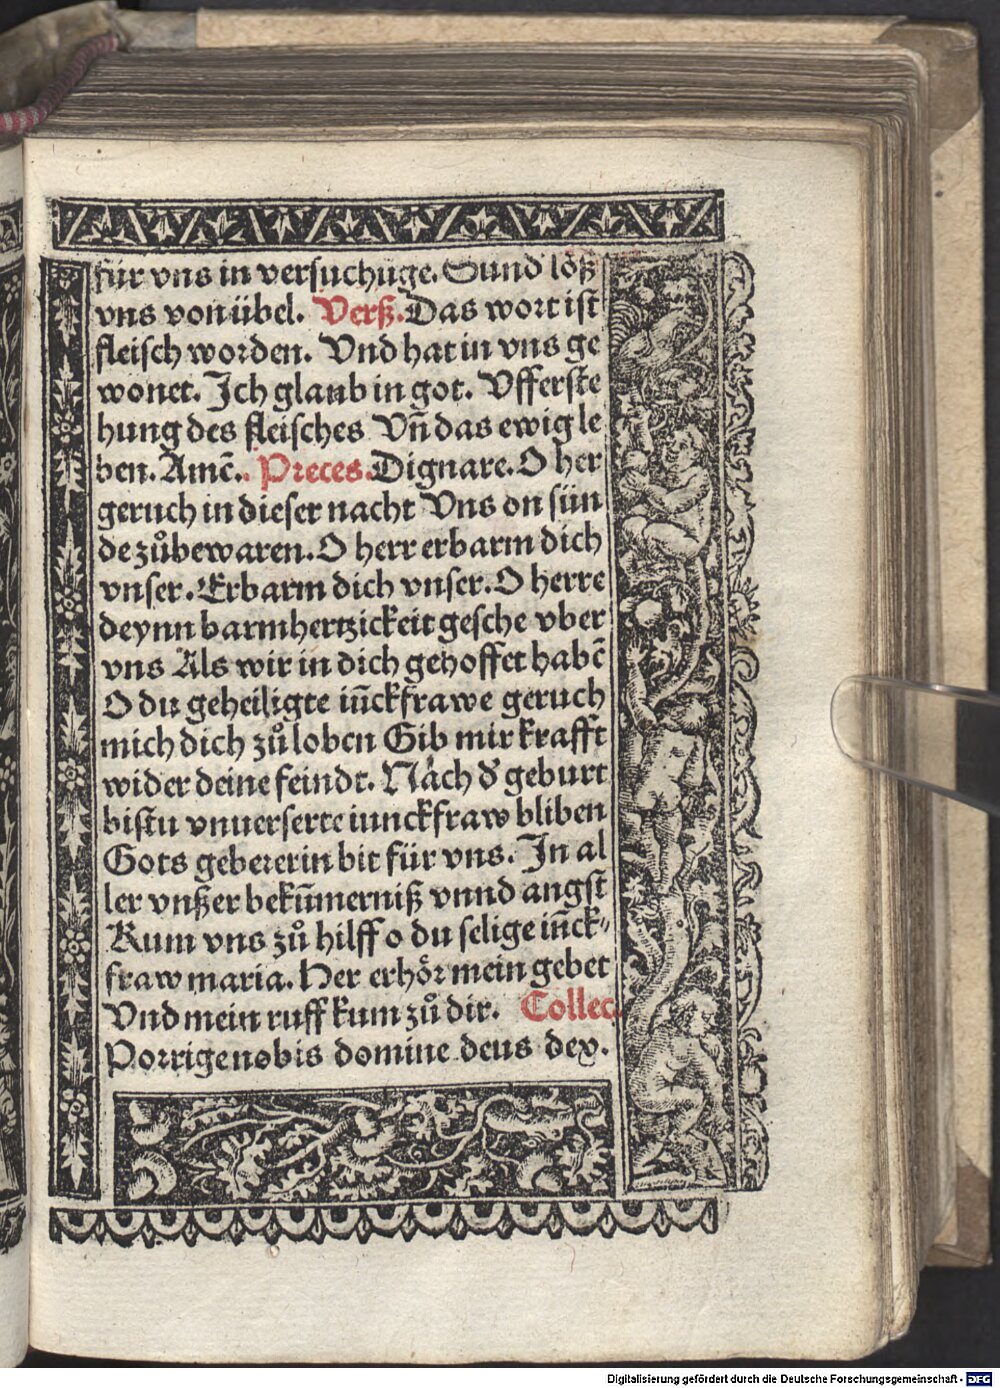 für vns in versuchūge. Sund löß
vns von übel. Verß. Das wort ist
fleisch worden. Vnd hat in vns ge
wonet. Ich glaub in got. Vfferste
hung des fleisches Vn̄ das ewig le
ben. Amē. Preces. Dignare. O her
geruch in dieser nacht Vns on sün
de zůbewaren. O herr erbarm dich
vnser. Erbarm dich vnser. O herre
deynn barmhertzickeit gesche vber
vns Als wir in dich gehoffet habē
O du geheiligte iūckfrawe geruch
mich dich zů loben Gib mir krafft
wider deine feindt. Nach d' geburt
bistu vnuerserte iunckfraw bliben
Gots gebererin bit für vns. In al
ler vnßer bekūmerniß vnnd angst
Kum vns zů hilff o du selige iūck⸗
fraw maria. Her erhör mein gebet
Vnd mein ruff kum zů dir. Collec.
Porrige nobis domine deus dex.
Digitalisierung gefördert durch die Deutsche Forschungsgemeinschaft - DFG